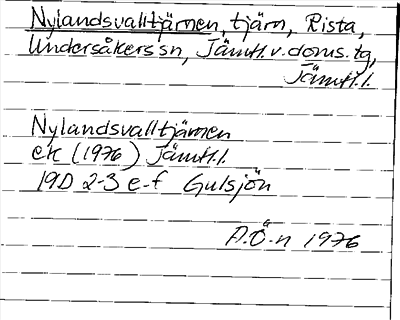 Nylandsvalltjärnen, tjärn, Rista,
Undersåkers sn, Jämtl. v. doms. tg,
Jämtl. l.
Nylandsvalltjärnen
ek (1976) Jämtl. l.
19D 2-3 e-f Gulsjön
P.Ö-n 1976